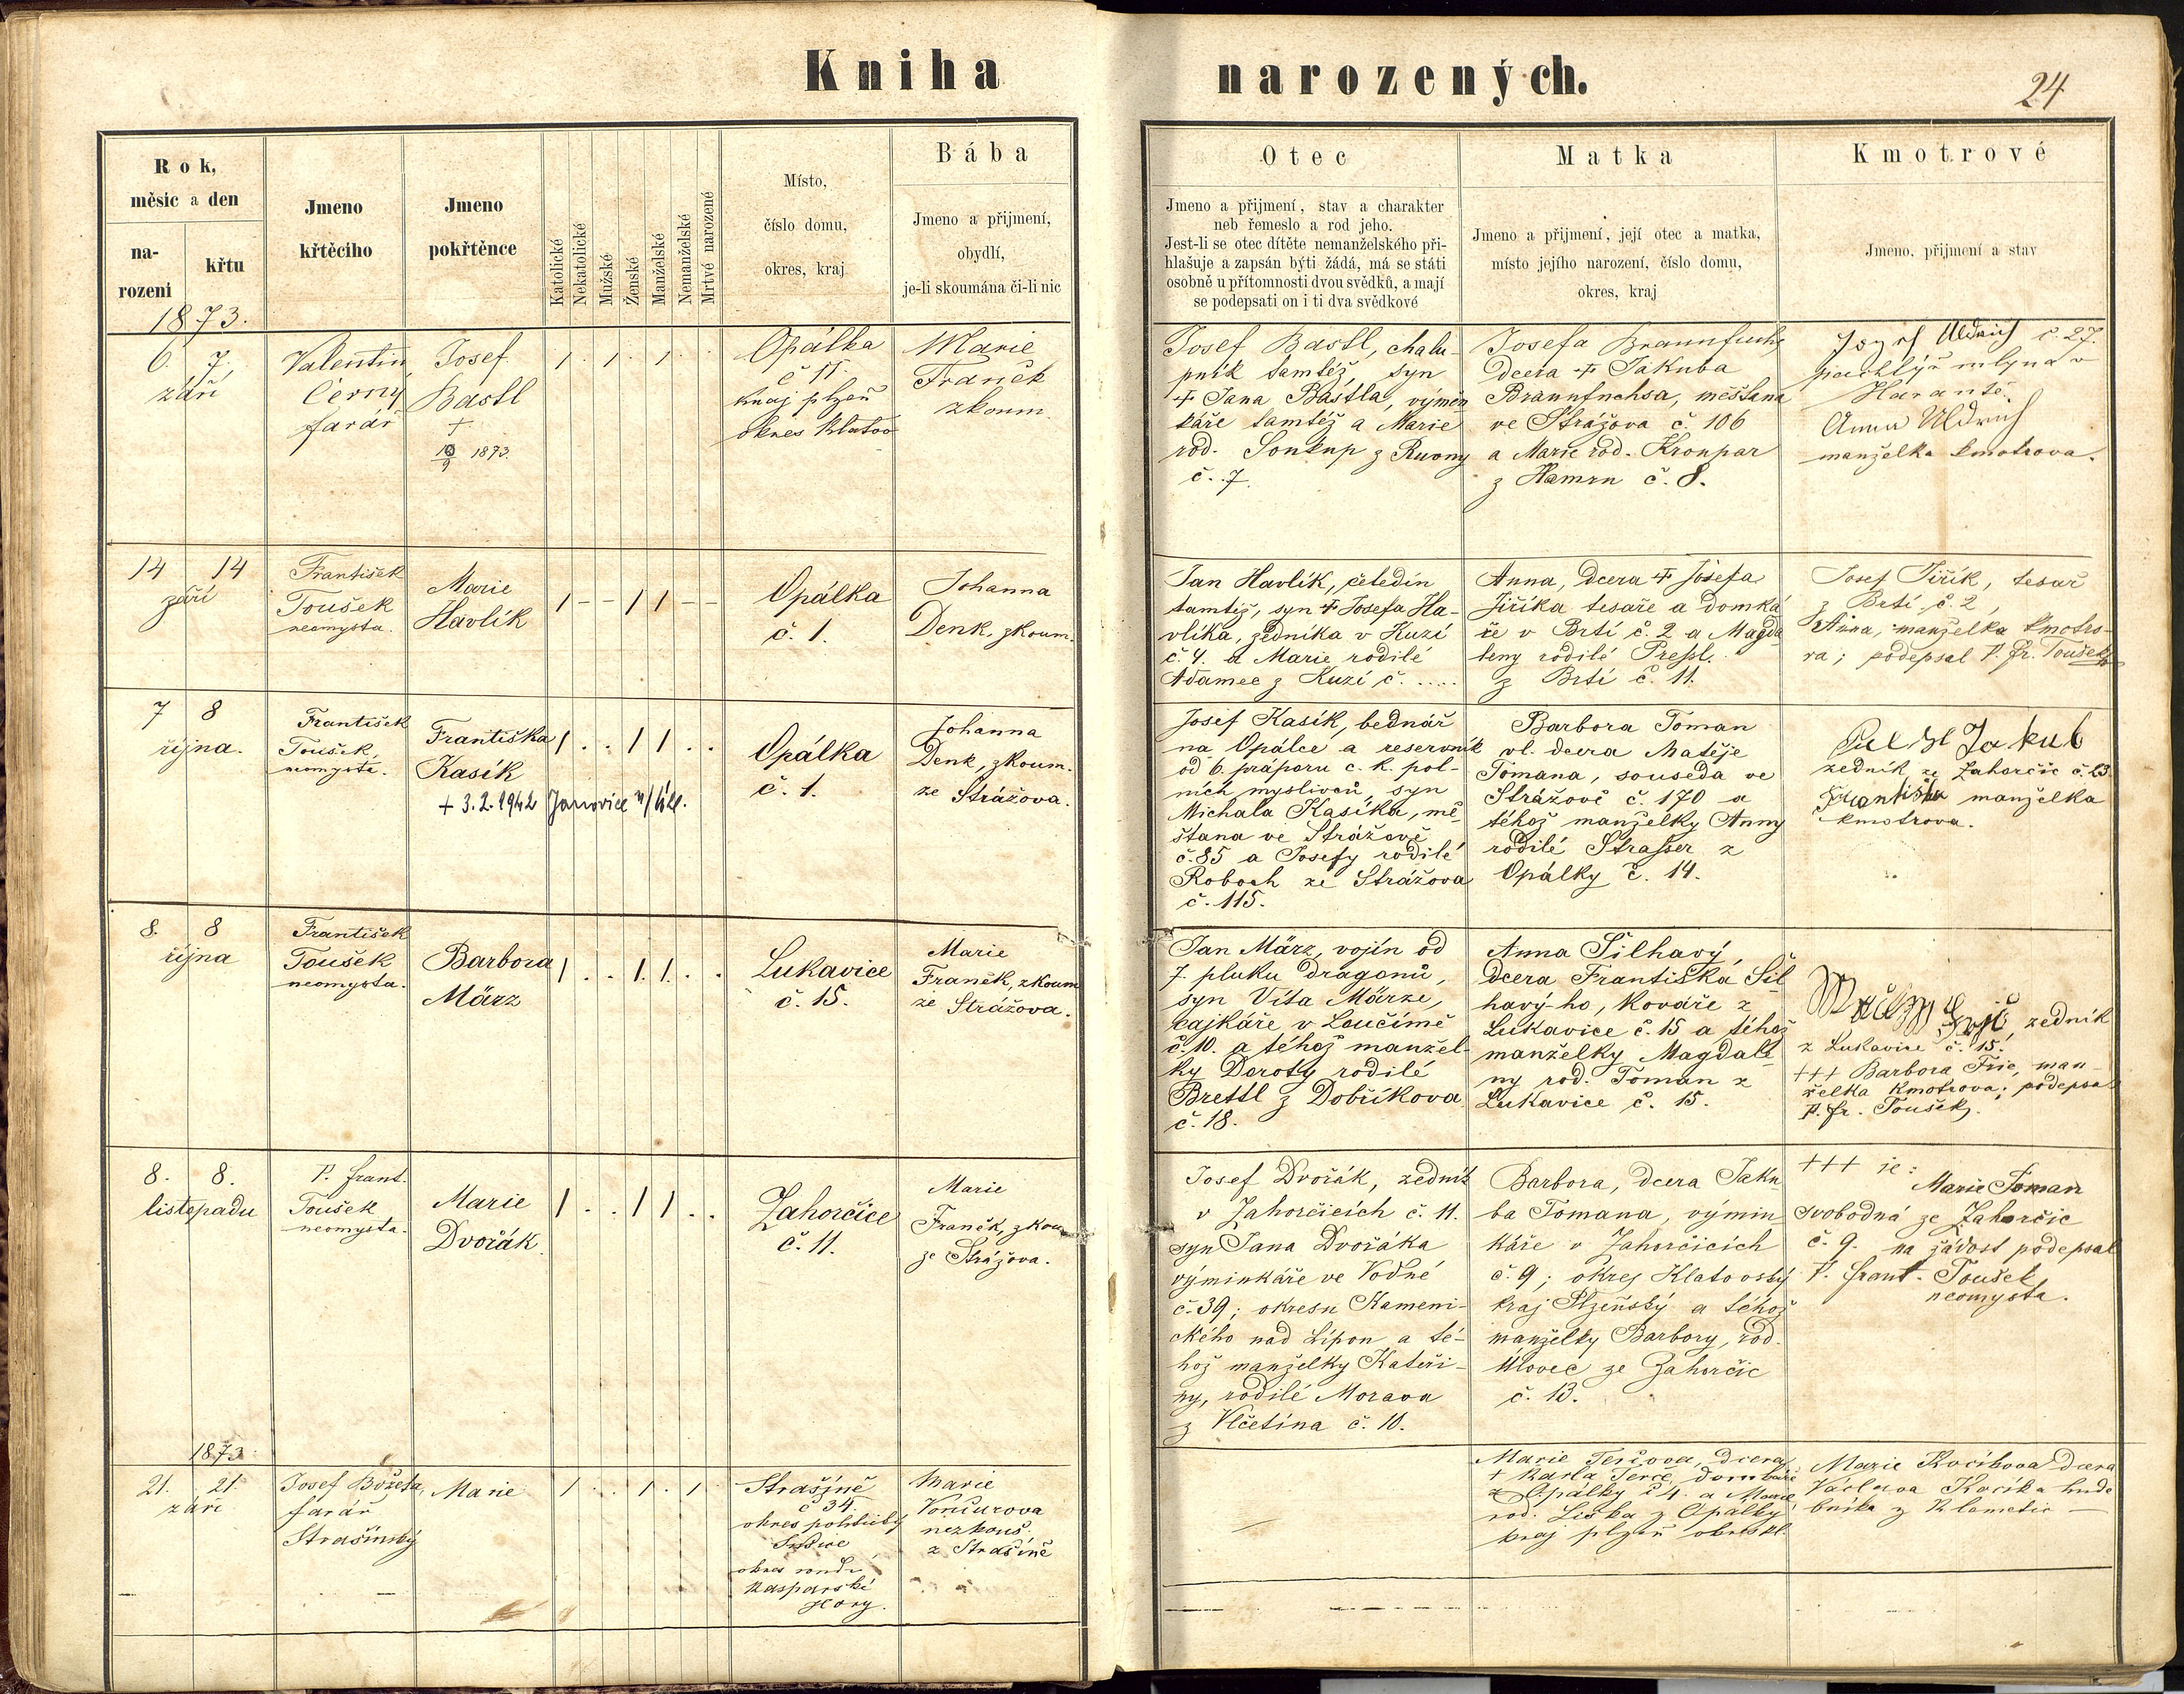 Kniha narozených.
24
Rok,
měsíc a den
na-
rozeni
křtu
Jmeno
křtěcího
Jmeno
pokřtěnce
Katolické
Nekatolické
Mužské
Ženské
Manželské
Nemanželské
Mrtvé narozené
Místo,
číslo domu,
okres, kraj
Bába
Jmeno a přijmení,
obydlí,
je-li skoumána či-li nic
Otec
Jmeno a přijmení, stav a charakter
neb řemeslo a rod jeho.
Jest-li se otec dítěte nemanželského při-
hlašuje a zapsán býti žádá, má se státi
osobně u přítomnosti dvou svědků, a mají
se podepsati on i ti dva svědkové
Matka
Jmeno a přijmení, její otec a matka,
místo jejího narození, číslo domu,
okres, kraj
Kmotrové
Jmeno, přijmení a stav
1873.
6. 7.
září
Valentin
Černy
farář
Josef
Bastl
+
10/9 1873.
/ . / . / . .
Opálka
č 11
kraj plzeň
okres Klatov
Marie
Franěk
zkoum.
Josef Bastl, chalu-
pník tamtéž, syn
+ Jana Bastla, výmĕn
káře tamtéž a Marie
rod. Soukup z Ruony
č. 7.
Josefa Braunfuchs
dcera + Jakuba
Braunfuchsa, měšťana
ve Strážova č. 106
a Marie rod. Kronpar
z Hamrn č. 8.
Josef Uldrich č. 27.
pachtýř mlýna v
Harantě.
Anna Uldrich
manželka kmotrova.
14 14
září
František
Toušek
neomysta.
Marie
Havlík
/ - - / / - -
Opálka
č. 1.
Johanna
Denk, zkoum.
Jan Havlík, čeledín
tamtéž, syn + Josefa Ha-
vlíka, zedníka v Kuzí
č. 4. a Marie rodilé
Adamec z Kuzí č. .....
Anna, dcera + Josefa
Jiříka tesaře a domká
ře v Brtí č. 2 a Magda
leny rodilé Preßl.
z Brtí č. 11.
Josef Jiřík, tesař
z Brtí č. 2,
Anna, manželka kmotro-
va; podepsal P. Fr. Toušek
7 8
října.
František
Toušek,
neomysta.
Františka
Kasík
+ 3.2.1942 Janovice n/Úhl.
/ . . / / . .
Opálka
č. 1.
Johanna
Denk, zkoum.
ze Strážova.
Josef Kasík, bednář
na Opálce a reservník
od 6. práporu c. k. pol-
ních myslivců, syn
Michala Kasíka, mě-
šťana ve Strážově
č. 85 a Josefy rodilé
Roboch ze Strážova
č. 115.
Barbora Toman
vl. dcera Matěje
Tomana, souseda ve
Strážově č. 170 a
téhož manželky Anny
rodilé Straßer z
Opálky č. 14.
Jakub
zedník ze Zahorčic č. 23
Františka manželka
kmotrova.
8. 8
října
František
Toušek
neomysta.
Barbora
März
/ . . / / . .
Lukavice
č. 15.
Marie
Franěk, zkoum
ze Strážova.
Jan März, vojín od
7. pluku dragonů,
syn Víta Märze,
cajkáře v Loučímě
č. 10. a téhož manžel-
ky Doroty rodilé
Brettl z Dobříkova
č. 18.
Anna Šilhavý,
dcera Františka Šil
havý-ho, kováře z
Lukavice č. 15 a téhož
manželky Magdalé
ny rod. Toman z
Lukavice č. 15.
zedník
z Lukavice č. 15.
+++ Barbora Frič, man-
želka kmotrova; podepsal
P. Fr. Toušek.
8. 8.
listopadu
P. Frant.
Toušek
neomysta.
Marie
Dvořák
/ . . / / . .
Zahorčice
č. 11.
Marie
Franěk, zkoum
ze Strážova.
Josef Dvořák, zedník
v Zahorčicích č. 11.
syn Jana Dvořáka
výminkáře ve Vodné
č. 39; okresu Kameni-
ckého nad Lípou a té-
hož manželky Kateři-
ny, rodilé Morava
z Vlčetína č. 10.
Barbora, dcera Jaku
ba Tomana, výmin
káře v Zahorčicích
č. 9; okres Klatovský
kraj Plzeňský a téhož
manželky Barbory, rod.
Úlovec ze Zahorčic
č. 13.
+++ je:
Marie Toman
svobodná ze Zahorčic
č. 9. na žádost podepsal
P. Frant. Toušek
neomysta.
1873
21. 21.
září
Josef Božeta,
farář
Strašínský
Marie
/ . . / . / .
Strašíně
č 34.
okres politický
Sušice
okres soudí
Kašparské
Hory.
Marie
Vončurova
nezkouš.
z Strašíně
Marie Terčova, dcera
+ Karla Terče, domkáře
z Opálky č 4. a Marie
rod. Liška z Opálky
kraj plzeň okres kl.
Marie Kocíkova dcera
Václava Kocíka hude
bníka z Klometic